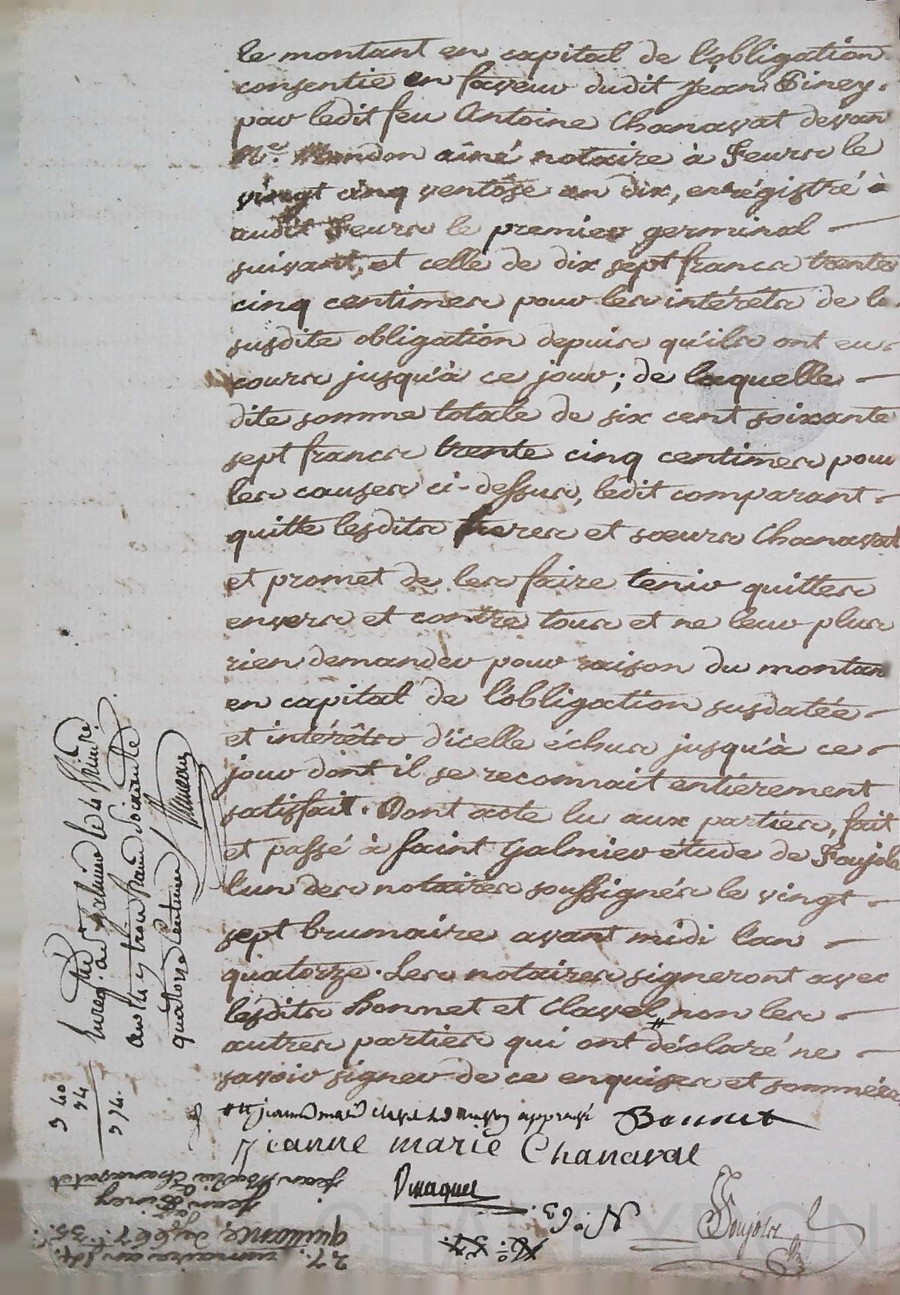 le montant en capital de l'obligation
consentie en faveur dudit jean Piney.
par ledit feu Antoine Chanavat devan
Me. Mondon ainé notaire à Feurs le
vingt cinq ventôse an dix, enrégistré
audit Feurs le premier germinal
suivant, et celle de dix sept francs trente
cinq centimes pour les intérêts de la
susdite obligation depuis qu'ils ont eu
cours jusqu'à ce jour; de laquelle
dite somme totale de six cent soixante
sept francs trente cinq centimes pour
les causes ci-dessus, ledit comparant
quitte lesdits freres et soeurs Chanavat
et promet de les faire tenir quittes
envers et contre tous et ne leur plus
rien demander pour raison du montan
en capital de l'obligation susdatée
et intérêts d'icelle échus jusqu'à ce
jour dont il se reconnait entièrement
satisfait. Dont acte lu aux parties, fait
et passé à saint galmier étude de Foujols
l'un des notaires soussignés le vingt
sept brumaire avant midi l'an
quatorze. Les notaires signeront avec
lesdits Bonnet et Clavel non les
autres parties qui ont déclaré ne
savoir signer de ce enquises et sommées
Bonnet
jeanne marie Chanaval
No. 63.
Foujols
Enregistré à St galmier le
quatorze Centimes
3 40
34
374.
27. brumaire an 14.
quittance de 667 f. 35.
jean Piney
jean Marie Chanavat
CHALEYRON